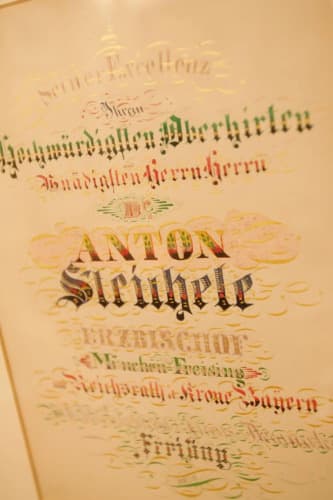 Seiner Excellenz
Ihrem
Hochwürdigsten Oberhirten
Gnädigsten Herrn Herrn
Dr
ANTON
Steichele
ERZBISCHOF
München-Freising
Reichsrath d. Krone Bayern